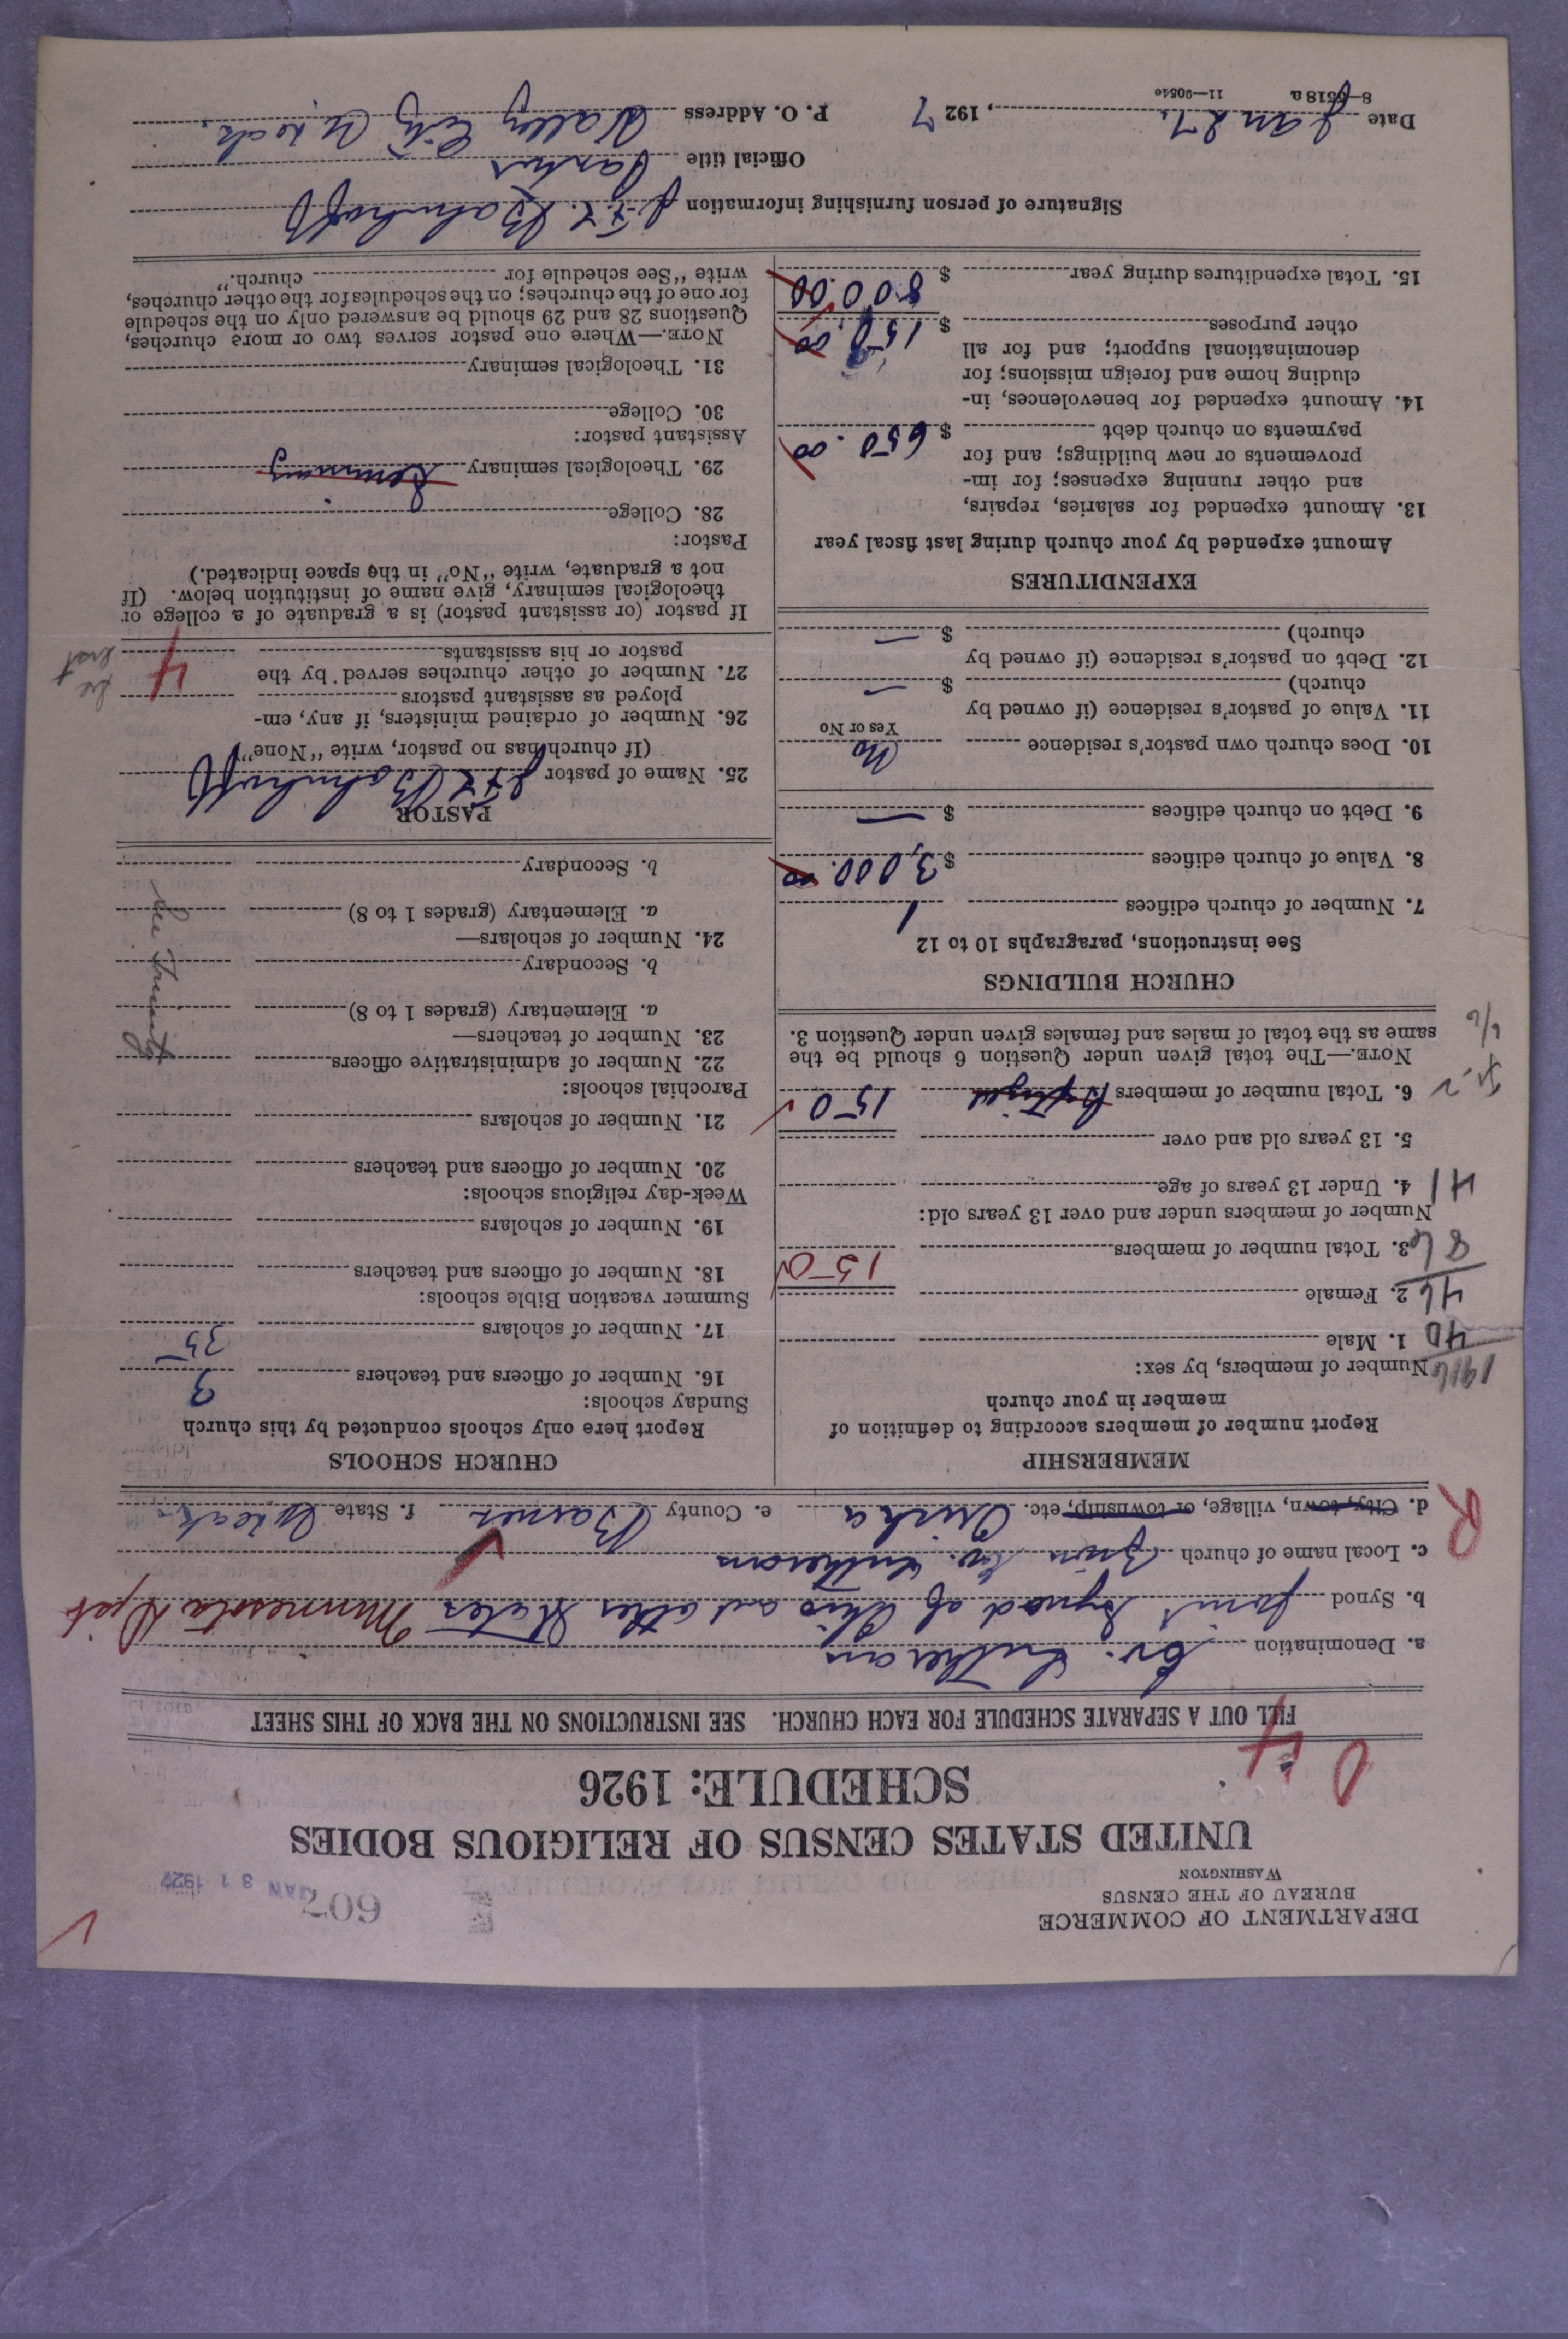 DEPARTMENT OF COMMERCE
BUREAU OF THE CENSUS
WASHINGTON
607
JAN 31 1927
UNITED STATES CENSUS OF RELIGIOUS BODIES
SCHEDULE: 1926
4
FILL OUT A SEPARATE SCHEDULE FOR EACH CHURCH. SEE INSTRUCTIONS ON THE BACK OF THIS SHEET
a. Denomination Ev. Lutheran
b. Synod Joint Synod of Ohio and other States Minnesota Dist
c. Local name of church Zion Ev. Lutheran
R
d. City, town, village, or township, etc. Oriska e. County Barnes f. State N. Dak.
MEMBERSHIP
Report number of members according to definition of
member in your church
Number of members, by sex:
1916
1. Male
40
2. Female
46
3. Total number of members 150
86
Number of members under and over 13 years old:
4. Under 13 years of age
41
5. 13 years old and over
6. Total number of members Baptized 150
NOTE.—The total given under Question 6 should be the
same as the total of males and females given under Question 3.
CHURCH BUILDINGS
See instructions, paragraphs 10 to 12
7. Number of church edifices 1
8. Value of church edifices $ 3,000.00
9. Debt on church edifices $ —
10. Does church own pastor's residence No
Yes or No
11. Value of pastor's residence (if owned by
church) $ —
12. Debt on pastor's residence (if owned by
church) $ —
EXPENDITURES
Amount expended by your church during last fiscal year
13. Amount expended for salaries, repairs,
and other running expenses; for im-
provements or new buildings; and for
payments on church debt $ 650.00
14. Amount expended for benevolences, in-
cluding home and foreign missions; for
denominational support; and for all
other purposes $ 150.00
15. Total expenditures during year $ 800.00
CHURCH SCHOOLS
Report here only schools conducted by this church
Sunday schools:
16. Number of officers and teachers 3
17. Number of scholars 35
Summer vacation Bible schools:
18. Number of officers and teachers
19. Number of scholars
Week-day religious schools:
20. Number of officers and teachers
21. Number of scholars
Parochial schools:
22. Number of administrative officers
23. Number of teachers—
a. Elementary (grades 1 to 8)
b. Secondary
24. Number of scholars—
a. Elementary (grades 1 to 8)
b. Secondary
PASTOR
25. Name of pastor
(If church has no pastor, write "None")
26. Number of ordained ministers, if any, em-
ployed as assistant pastors
27. Number of other churches served by the
pastor or his assistants 4
If pastor (or assistant pastor) is a graduate of a college or
theological seminary, give name of institution below. (If
not a graduate, write "No" in the space indicated.)
Pastor:
28. College
29. Theological seminary Seminary
Assistant pastor:
30. College
31. Theological seminary
NOTE.—Where one pastor serves two or more churches,
Questions 28 and 29 should be answered only on the schedule
for one of the churches; on the schedules for the other churches,
write "See schedule for church."
Signature of person furnishing information
Official title Pastor
Date Jan 27, 1927 P. O. Address Valley City N. Dak.
8—5518a 11—9054e